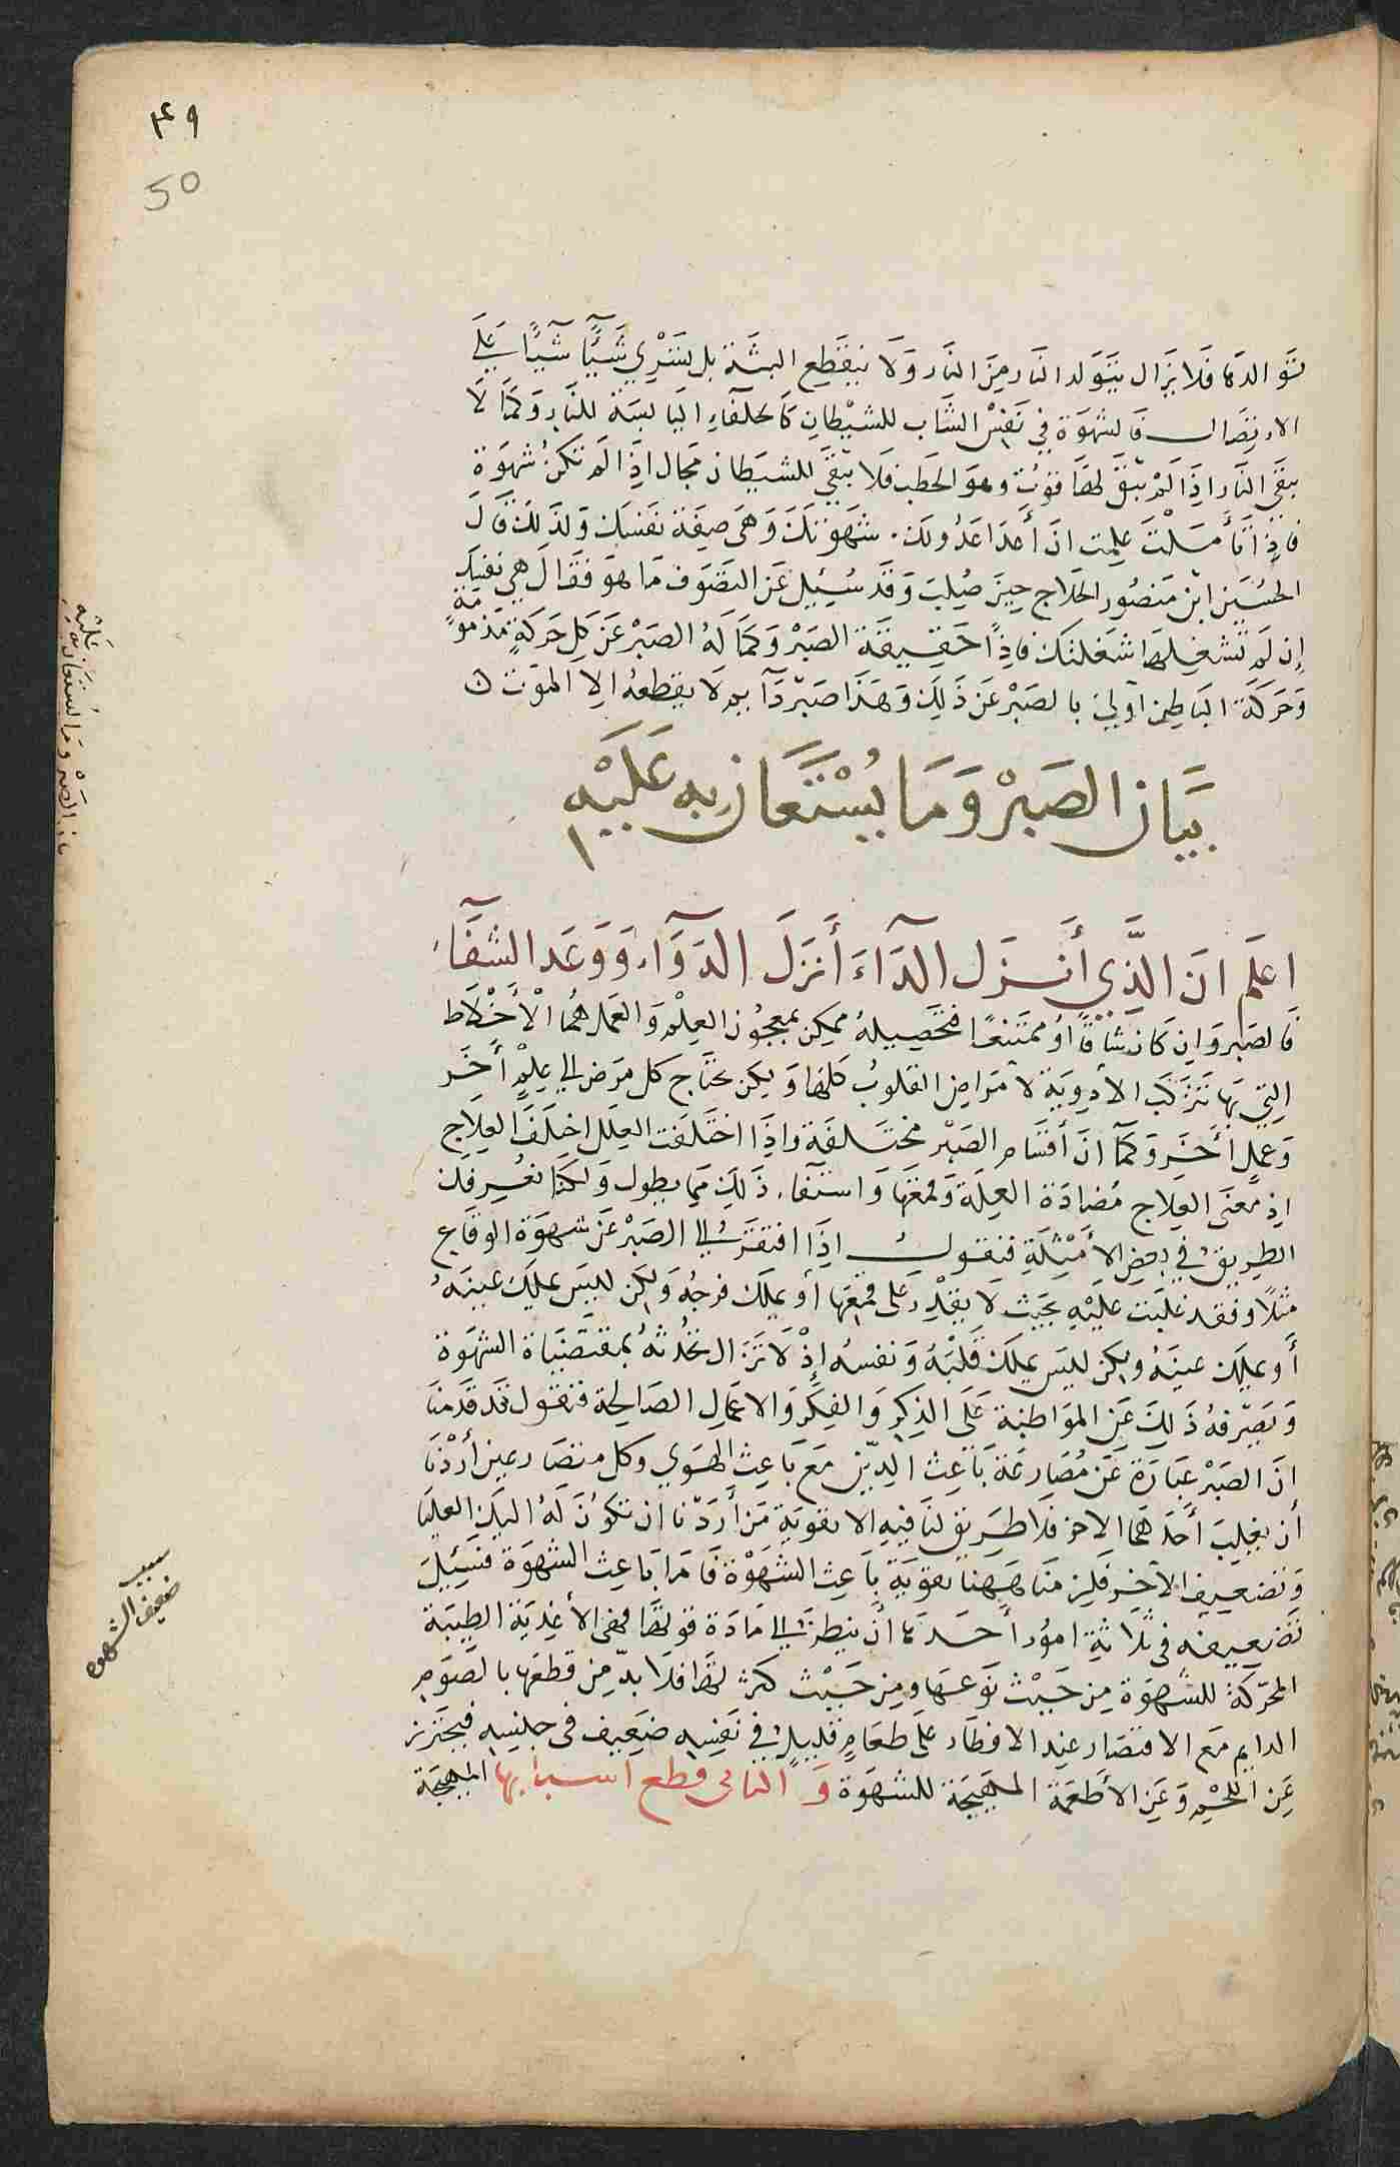 ٤٩
50
تَوَالدهَا فَلَا يَزَال يَتَوَلد النَار مِنَ النَار وَلَا ينقَطِع البتَة بل يَسْرِي شَيًا شَيًا عَلَى
الاتِصَال فَالشهوَة في نَفْسِ الشَاب للشيْطانِ كَالحلفَاءِ اليَابسَة للنَارِ وَكَمَا لَا
يبقَى النَار اذَا لَمْ يَبْقَ لهَا قوتٌ وهوَ الحَطب فَلَا يَبْقَى للشيَطان مَجال اذَا لَم تَكنْ شَهوَة
فَاِذا تَأَمَلْتَ عَلِمت انَ أعدَا عَدُولَك شهوَتكَ وَهى صِفَة نَفسَك وَلذَلكَ قَالَ
الحُسَين ابْن مَنصُور الحَلاج حِينَ صُلِبَ وَقَد سُئِيلَ عَن التصَوف مَا هوَ فقَالَ هِي نَفسَك
إن لَم تَشغلهَا شغلتكَ فَاِذًا حَقيقَة الصَبْر وَكمَا لَهُ الصَبْر عَن كل حَركَةٍ مَذمومَةٍ
وَحَركَة البَاطِن اَولىَ بالصَبْر عَن ذَلِكَ وَهَذَا صَبْر دَآيم لَا يقطَعهُ الا الموَت
بيَان الصَبْر وَمَا يُسْتَعَان بِه عَلَيْهِ
بيان الصَبْر وَما يُستعَان بهِ عَليْهِ
اعلَم ان الذَّي أَنزَل الدَآءَ أَنزَلَ الدَوَآء وَوَعَد الشفَآءَ
فَالصَبر وَاِن كَان شَاقًا اوْ ممتَنعًا فتحَصِيلهُ ممكِن بمعجُون العِلمْ وَالعَمل هُمَا الْأخْلاَط
التِي بهَا تَتركَب الأدوِيَة لأمَراضِ القلوبْ كلهَا وَلِكن يحتَاج كل مرَض الي عِلمْ أخَر
وَعمَلٍ أَخَر وَكَمَآ انَ أقسَام الصَبْر مختَلفَة واذَا اختَلفَت العِلَل اختَلَفَ العِلَاج
اِذ معنَى العِلاج مُضادَة العِلَة وَقمعَهَا وَاستيفَاء ذَلكَ ممَا يطول وَلكنَا نُعَرِفكَ
الطِريقُ في بعضِ الأمثِلَةِ فنقول اذَا افتقَرَ الي الصَبْر عَن شهوَة الوِقَاع
مثلًا وفقد غلبَت عليْهِ بحَيث لَا يقدِر عَلى قمعَهَا أو يملكَ فرجُهُ وَلكِن ليس يملكَ عَينَهُ
أَو يملكَ عينَهُ ولكن ليَس يملكَ قَلبَهُ وَنفسهُ إذْ لَا تَزَال تحُدثهُ بمقتضَيَاة الشهوَة
وَيَصِرّفهُ ذَلكَ عَنِ الموَاظبَة عَلَى الذكِر وَالفِكَر وَالاعمَالِ الصَالحِة فنقول قد قَدمنَا
انَ الصَبْر عِبَارَة عَن مُصَارعَة بَاعِث الدِيْن مَع بَاعِثِ الهوَي وكل متصَارعين أردْنَا
أن يغلِبَ أحَدَهمَا الاخر فَلَا طريق لنَا فيه الا تقويَة مَن أردّنا ان تكونَ لَهُ اليَد العليَا
وَتضعِيف الآخِر فلِزمنَا ههنا تقوِيَة بَاعِث الشَهوْة فَامَا بَاعِث الشهوَة فسَئِيل
تَضْعِيفه في ثلَاثةِ امُور أَحَدهَا أن ينظرَ الي مَادَة قوتهَا فهى الأغذِيَة الطيِبَة
المحرِّكَة للشَهوَة مِن حَيْث نوَعهَا ومِن حَيْث كثرتهَا فلَا بدّ مِن قطعهَا بالصَوم
الدايم مَع الاقتصَار عند الافطَار علَى طعَامٍ قليِلٌ في نَفسِه ضَعِيف في جنسِه فيحترز
عَن اللحْم وَعَن الأطعمَة المهيجَة للشهوَة وَ الثانى قطع اسبابها المهيجَة
سبب
ضعيف الشهوة